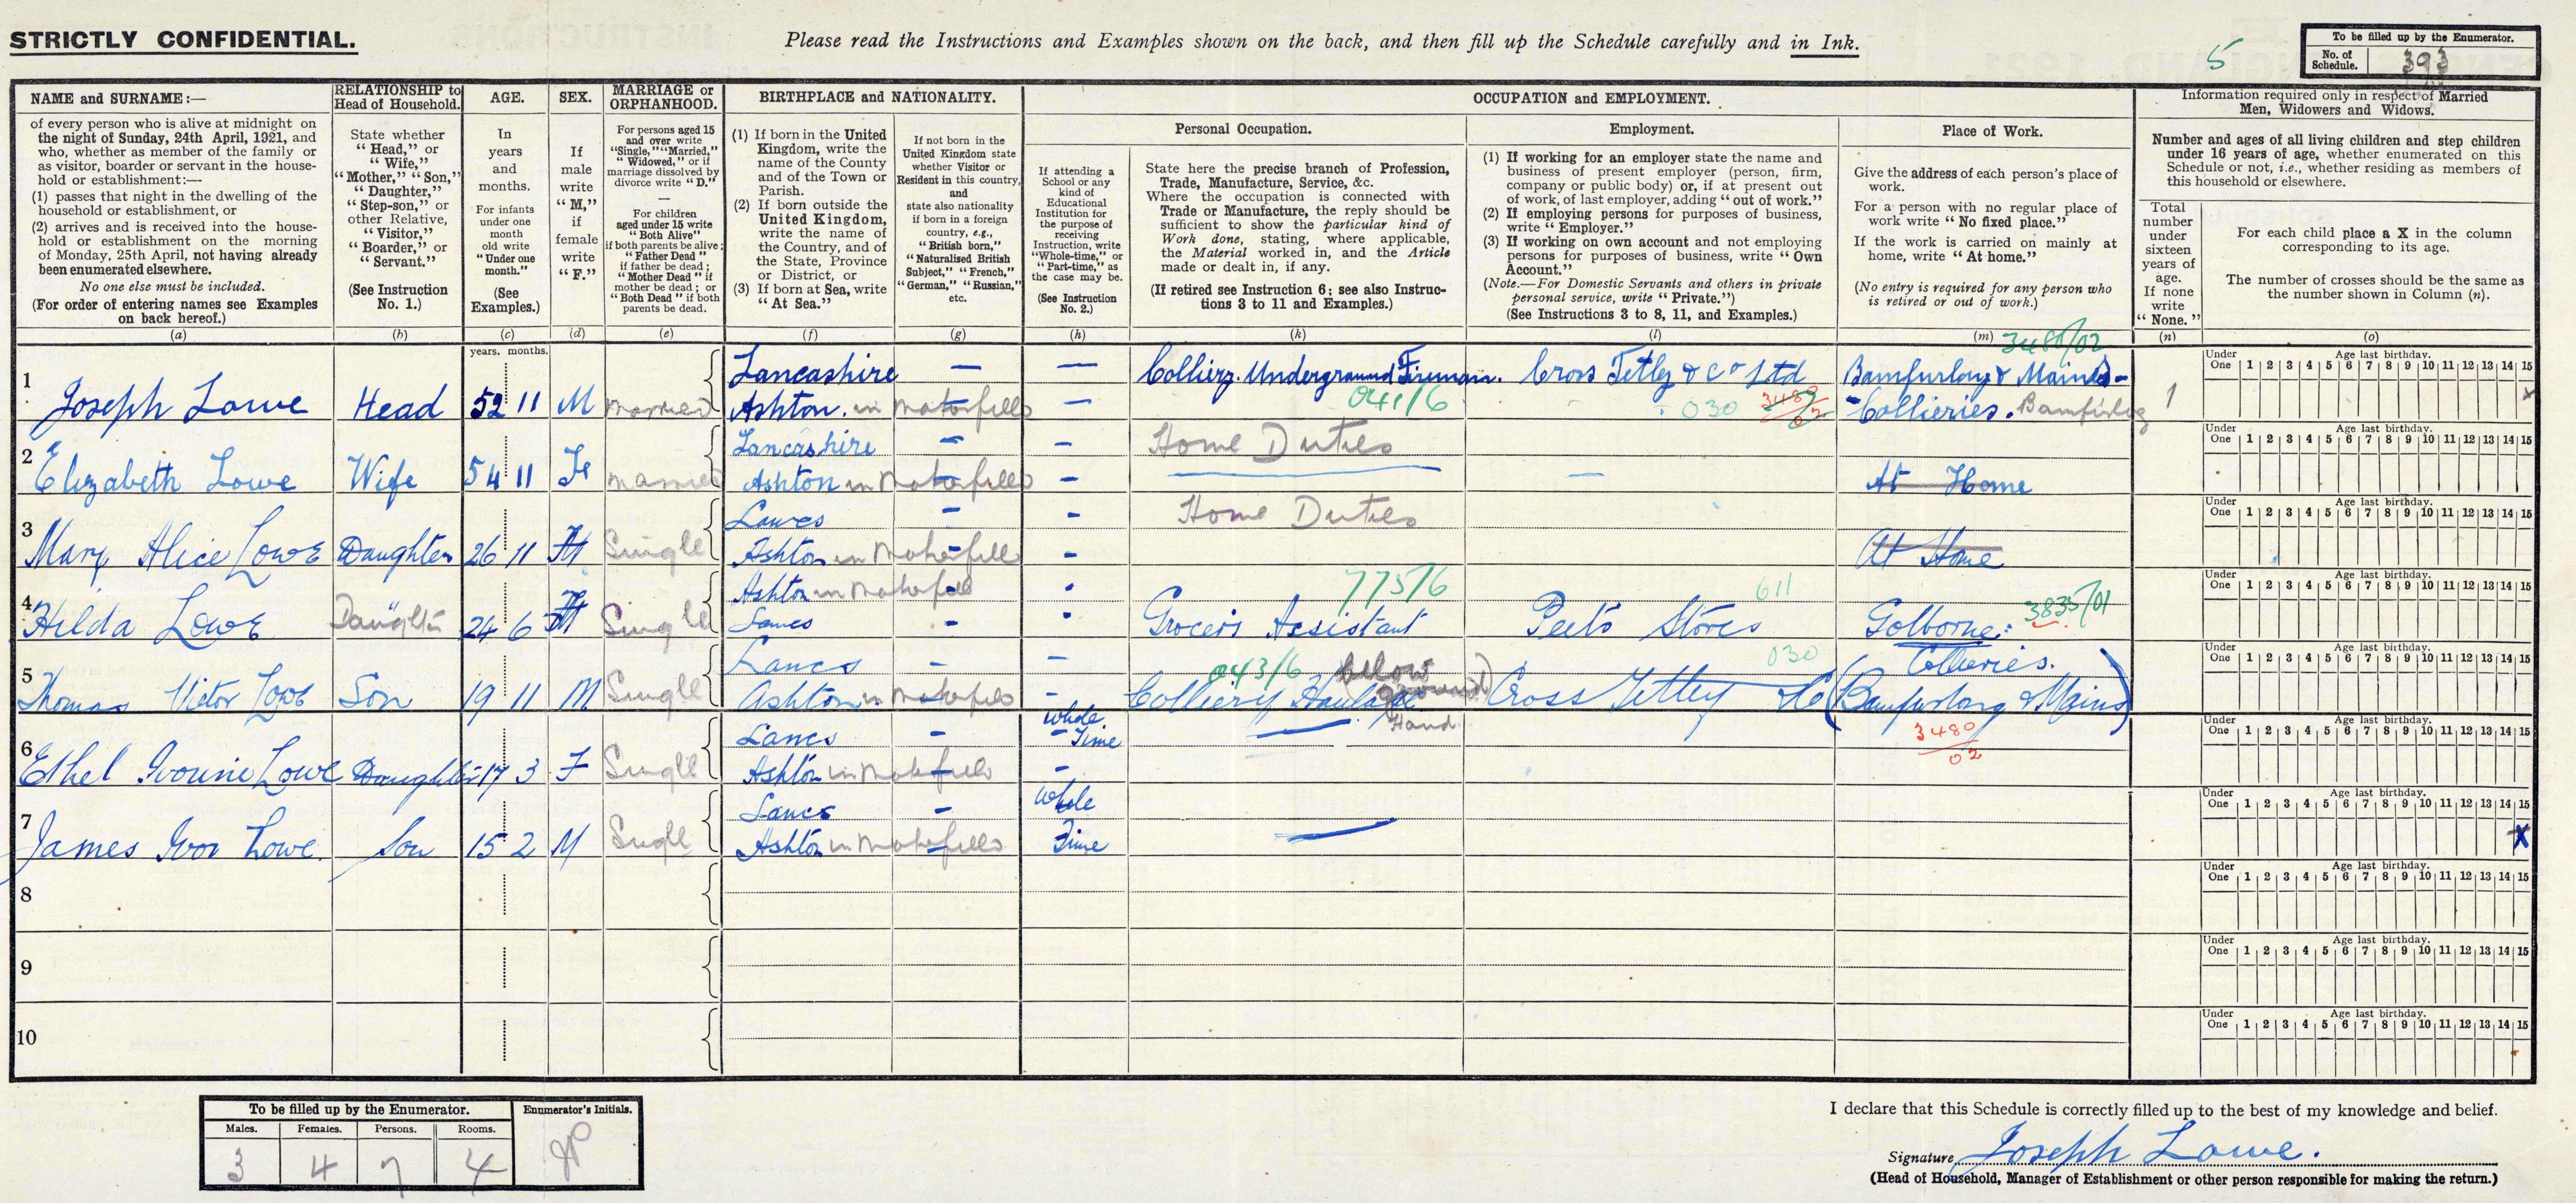 STRICTLY CONFIDENTIAL.
Please read the Instructions and Examples shown on the back, and then fill up the Schedule carefully and in Ink.
5
To be filled up by the Enumerator.
No. of Schedule. 393
NAME and SURNAME:—
of every person who is alive at midnight on
the night of Sunday, 24th April, 1921, and
who, whether as member of the family or
as visitor, boarder or servant in the house-
hold or establishment:—
(1) passes that night in the dwelling of the
household or establishment, or
(2) arrives and is received into the house-
hold or establishment on the morning
of Monday, 25th April, not having already
been enumerated elsewhere.
No one else must be included.
(For order of entering names see Examples
on back hereof.)
(a)
RELATIONSHIP to
Head of Household.
State whether
"Head," or
"Wife,"
"Mother," "Son,"
"Daughter,"
"Step-son," or
other Relative,
"Visitor,"
"Boarder," or
"Servant."
(See Instruction
No. 1.)
(b)
AGE.
In
years
and
months.
For infants
under one
month
old write
"Under one
month."
(See
Examples.)
(c)
SEX.
If
male
write
"M,"
if
female
write
"F."
(d)
MARRIAGE or
ORPHANHOOD.
For persons aged 15
and over write
"Single," "Married,"
"Widowed," or if
marriage dissolved by
divorce write "D."
—
For children
aged under 15 write
"Both Alive"
if both parents be alive;
"Father Dead"
if father be dead;
"Mother Dead" if
mother be dead; or
"Both Dead" if both
parents be dead.
(e)
BIRTHPLACE and NATIONALITY.
(1) If born in the United
Kingdom, write the
name of the County
and of the Town or
Parish.
(2) If born outside the
United Kingdom,
write the name of
the Country, and of
the State, Province
or District, or
(3) If born at Sea, write
"At Sea."
(f)
If not born in the
United Kingdom state
whether Visitor or
Resident in this country,
and
state also nationality
if born in a foreign
country, e.g.,
"British born,"
"Naturalised British
Subject," "French,"
"German," "Russian,"
etc.
(g)
OCCUPATION and EMPLOYMENT.
If attending a
School or any
kind of
Educational
Institution for the
purpose of
receiving
Instruction, write
"Whole-time," or
"Part-time," as
the case may be.
(See Instruction
No. 2.)
(h)
Personal Occupation.
State here the precise branch of Profession,
Trade, Manufacture, Service, &c.
Where the occupation is connected with
Trade or Manufacture, the reply should be
sufficient to show the particular kind of
Work done, stating, where applicable,
the Material worked in, and the Article
made or dealt in, if any.
(If retired see Instruction 6; see also Instruc-
tions 3 to 11 and Examples.)
(k)
Employment.
(1) If working for an employer state the name and
business of present employer (person, firm,
company or public body) or, if at present out
of work, of last employer, adding "out of work."
(2) If employing persons for purposes of business,
write "Employer."
(3) If working on own account and not employing
persons for purposes of business, write "Own
Account."
(Note.—For Domestic Servants and others in private
personal service, write "Private.")
(See Instructions 3 to 8, 11, and Examples.)
(l)
Place of Work.
Give the address of each person's place of
work.
For a person with no regular place of
work write "No fixed place."
If the work is carried on mainly at
home, write "At home."
(No entry is required for any person who
is retired or out of work.)
(m)
Information required only in respect of Married
Men, Widowers and Widows.
Number and ages of all living children and step children
under 16 years of age, whether enumerated on this
Schedule or not, i.e., whether residing as members of
this household or elsewhere.
Total
number
under
sixteen
years of
age.
If none
write
"None."
(n)
For each child place a X in the column
corresponding to its age.
The number of crosses should be the same as
the number shown in Column (n).
(o)
years. months.
3480/02
1 Joseph Lowe Head 52 11 M Married Lancashire — — Colliery Underground Fireman. Cross Tetley & Co Ltd Bamfurlong & Mains - 1
Ashton. in Makerfield — 041/6 030 3480/02 Collieries. Bamfurlong
Under One 1 2 3 4 5 6 7 8 9 10 11 12 13 14 15 Age last birthday. X
2 Elizabeth Lowe Wife 54 11 Fe Married Lancashire — — Home Duties
Ashton in Makerfield — At Home
Under One 1 2 3 4 5 6 7 8 9 10 11 12 13 14 15 Age last birthday.
3 Mary Alice Lowe Daughter 26 11 F Single Lancs — — Home Duties
Ashton in Makerfield — At Home
Under One 1 2 3 4 5 6 7 8 9 10 11 12 13 14 15 Age last birthday.
4 Hilda Lowe Daughter 24 6 F Single Ashton in Makerfield 775/6 611
Lancs — Grocers Assistant Peets Stores Golborne. 3835/01
Under One 1 2 3 4 5 6 7 8 9 10 11 12 13 14 15 Age last birthday.
5 Thomas Victor Lowe Son 19 11 M Single Lancs — — 043/6 below 030 Collieries.
Ashton in Makerfield — Colliery Haulage (ground) Hand Cross Tetley & Co (Bamfurlong & Mains)
Under One 1 2 3 4 5 6 7 8 9 10 11 12 13 14 15 Age last birthday.
6 Ethel Ivonne Lowe Daughter 17 3 F Single Lancs — Whole Time — 3480/02
Ashton in Makerfield —
Under One 1 2 3 4 5 6 7 8 9 10 11 12 13 14 15 Age last birthday.
7 James Ivor Lowe. Son 15 2 M Single Lancs — Whole
Ashton in Makerfield — Time —
Under One 1 2 3 4 5 6 7 8 9 10 11 12 13 14 15 Age last birthday. X
8
Under One 1 2 3 4 5 6 7 8 9 10 11 12 13 14 15 Age last birthday.
9
Under One 1 2 3 4 5 6 7 8 9 10 11 12 13 14 15 Age last birthday.
10
Under One 1 2 3 4 5 6 7 8 9 10 11 12 13 14 15 Age last birthday.
To be filled up by the Enumerator. Enumerator's Initials.
Males. Females. Persons. Rooms.
3 4 7 4
I declare that this Schedule is correctly filled up to the best of my knowledge and belief.
Signature Joseph Lowe.
(Head of Household, Manager of Establishment or other person responsible for making the return.)